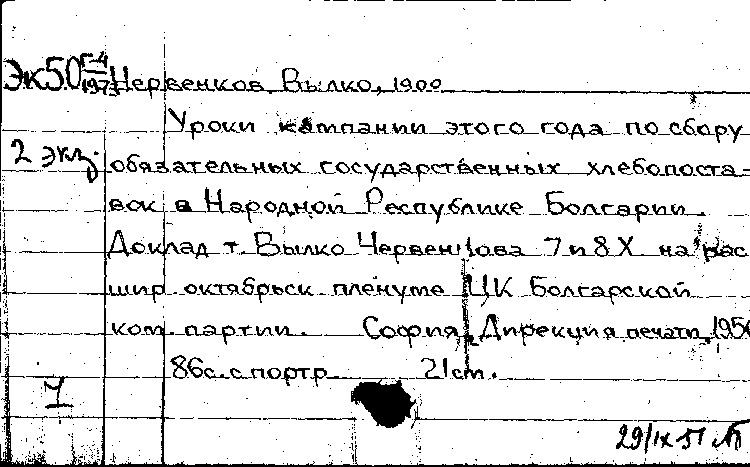 Эк50 Г-4/1973 Червенков, Вылко, 1900
Уроки кампании этого года по сбору
2 экз. обязательных государственных хлебопоста-
вок в Народной Республике Болгарии.
Доклад т. Вылко Червенкова 7 и 8 X на рас
шир. октябрьск. пленуме ЦК Болгарской
ком. партии. София, Дирекция печати, 1950
86с. с портр. 21 cm.
29/IX 51